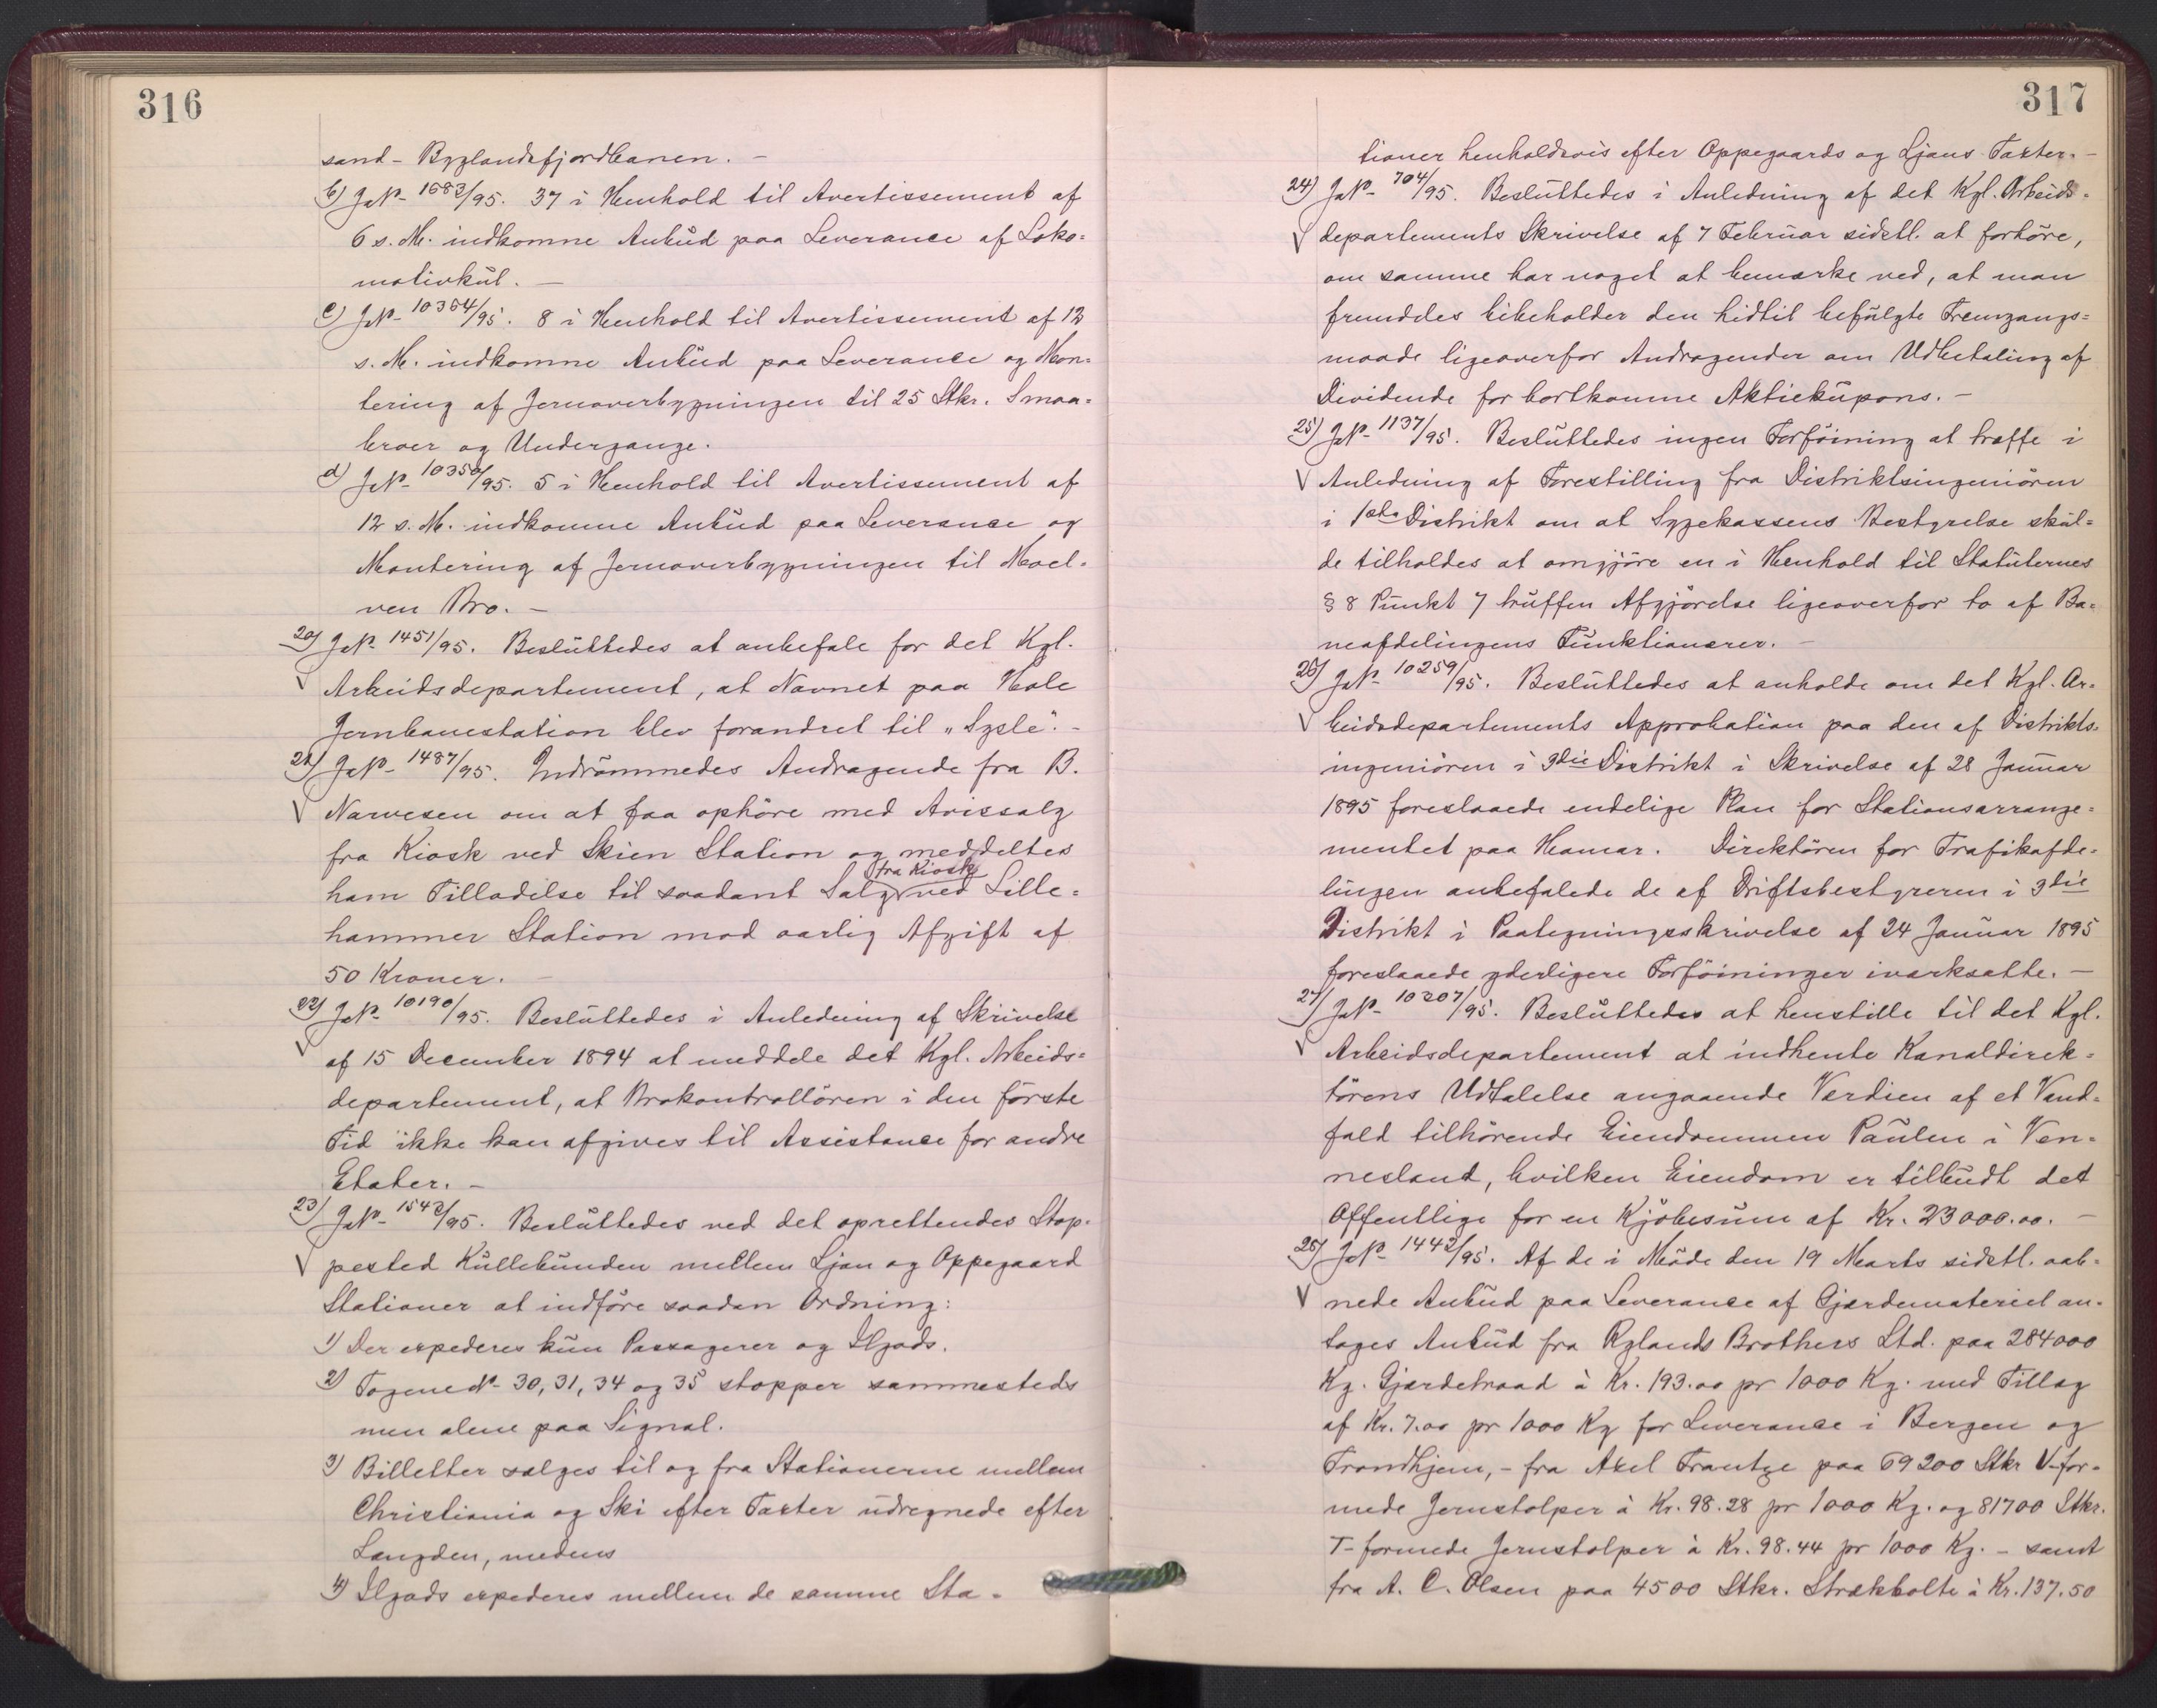 316
sand-Byglandsfjordbanen. -
b) JNo 1683/95. 37 i Henhold til Avertissement af
6 s. M. indkomne Anbud paa Leverance af Loko=
motivkul. -
c) JNo 10364/95. 8 i Henhold til Avertissement af 12
s. M. indkomne Anbud paa Leverance og Mon=
tering af Jernoverbygningen til 25 Stkr. Smaa=
broer og Undergange.
d) JNo 10350/95. 5 i Henhold til Avertissement af
12 s. M. indkomne Anbud paa Leverance og
Montering af Jernoverbygningen til Moel=
ven Bro. -
20) JNo 1451/95. Besluttedes at anbefale for det Kgl.
Arbeidsdepartement, at Navnet paa Hole
Jernbanestation blev forandret til „Sysle". -
21) JNo 1487/95. Indrömmedes Andragende fra B.
Narvesen om at faa ophöre med Avissalg
fra Kiosk ved Skien Station og meddeltes
ham Tilladelse til saadant Salg fra Kiosk ved Lille=
hammer Station mod aarlig Afgift af
50 Kroner. -
22) JNo 10190/95. Besluttedes i Anledning af Skrivelse
af 15 December 1894 at meddele det Kgl. Arbeids=
departement, at Brokontrollören i den förste
Tid ikke kan afgives til Assistance for andre
Etater. -
23) JNo 1542/95. Besluttedes ved det oprettendes Stop=
pested Kullebunden mellem Ljan og Oppegaard
Stationer at indföre saadan Ordning:
1) Der expederes kun Passagerer og Ilgods.
2) Togene No 30, 31, 34 og 35 stopper sammesteds
men alene paa Signal.
3) Billetter sælges til og fra Stationerne mellem
Christiania og Ski efter Taxter udregnede efter
Længden, medens
4) Ilgods expederes mellem de samme Sta=
317
tioner henholdsvis efter Oppegaards og Ljans Taxter. -
24) JNo 704/95. Besluttedes i Anledning af det Kgl. Arbeids=
departements Skrivelse af 7 Februar sidstl. at forhöre,
om samme har noget at bemærke ved, at man
fremdeles bibeholder den hidtil befulgte Fremgangs=
maade ligeoverfor Andragender om Udbetaling af
Dividende for bortkomne Aktiekupons. -
25) JNo 1137/95. Besluttedes ingen Forföining at træffe i
Anledning af Forestilling fra Distriktsingeniören
i 1ste Distrikt om at Sygekassens Bestyrelse skul=
de tilholdes at omgjöre en i Henhold til Statuternes
§ 8 Punkt 7 truffen Afgjörelse ligeoverfor to af Ba=
neafdelingens Funktionærer. -
26) JNo 10259/95. Besluttedes at anholde om det Kgl. Ar=
beidsdepartements Approbation paa den af Distrikts=
ingeniören i 3die Distrikt i Skrivelse af 28 Januar
1895 foreslaaede endelige Plan for Stationsarrange=
mentet paa Hamar. Direktören for Trafikafde=
lingen anbefalede de af Driftsbestyreren i 3die
Distrikt i Paategningsskrivelse af 24 Januar 1895
foreslaaede yderligere Forföininger iværksatte. -
27) JNo 10207/95. Besluttedes at henstille til det Kgl.
Arbeidsdepartement at indhente Kanaldirek=
törens Udtalelse angaaende Verdien af et Vand=
fald tilhörende Eiendommen Paulen i Ven=
nesland, hvilken Eiendom er tilbudt det
Offentlige for en Kjöbesum af Kr. 23000.00. -
28) JNo 1442/95. Af de i Möde den 19 Marts sidstl. aab=
nede Anbud paa Leverance af Gjærdemateriel an=
toges Anbud fra Rylands Brothers Ltd. paa 284000
Kg. Gjærdetraad à Kr. 193.00 pr 1000 Kg. med Tillæg
af Kr. 7.00 pr 1000 Kg for Leverance i Bergen og
Trondhjem, - fra Axel Frantze paa 69200 Stkr V-for=
mede Jernstolper à Kr. 98.28 pr 1000 Kg. og 81700 Stkr.
T-formede Jernstolper à Kr. 98.44 pr 1000 Kg. - samt
fra A. C. Olsen paa 4500 Stkr. Strækbolte à Kr. 137.50